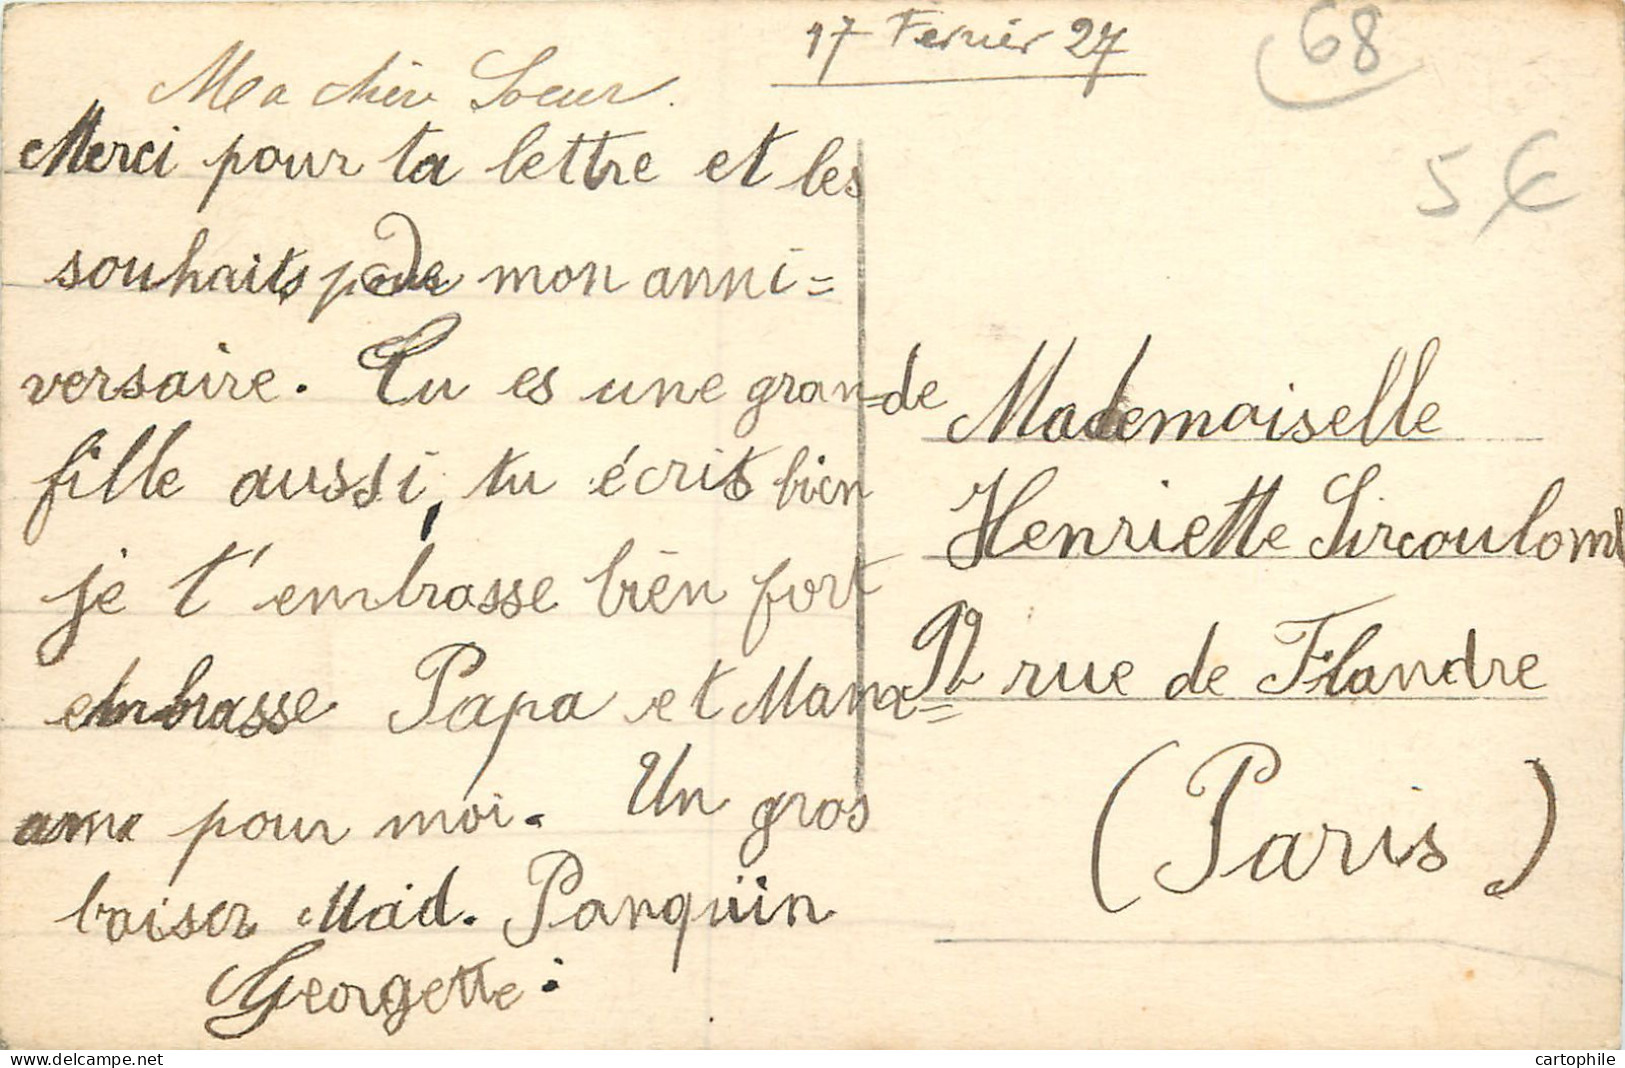 17 Fevrier 27
68
5 €
Ma chère Soeur.
Merci pour ta lettre et les
souhaits de mon anni=
versaire. Tu es une gran=de
fille aussi, tu écrit bien
je t'embrasse bien fort
embrasse Papa et Mam
ame pour moi. Un gros
baiser Maid. Panquin
Georgette.
Mademoiselle
Henriette Sircoulomb
92 rue de Flandre
(Paris)
delcampe.net
cartophile